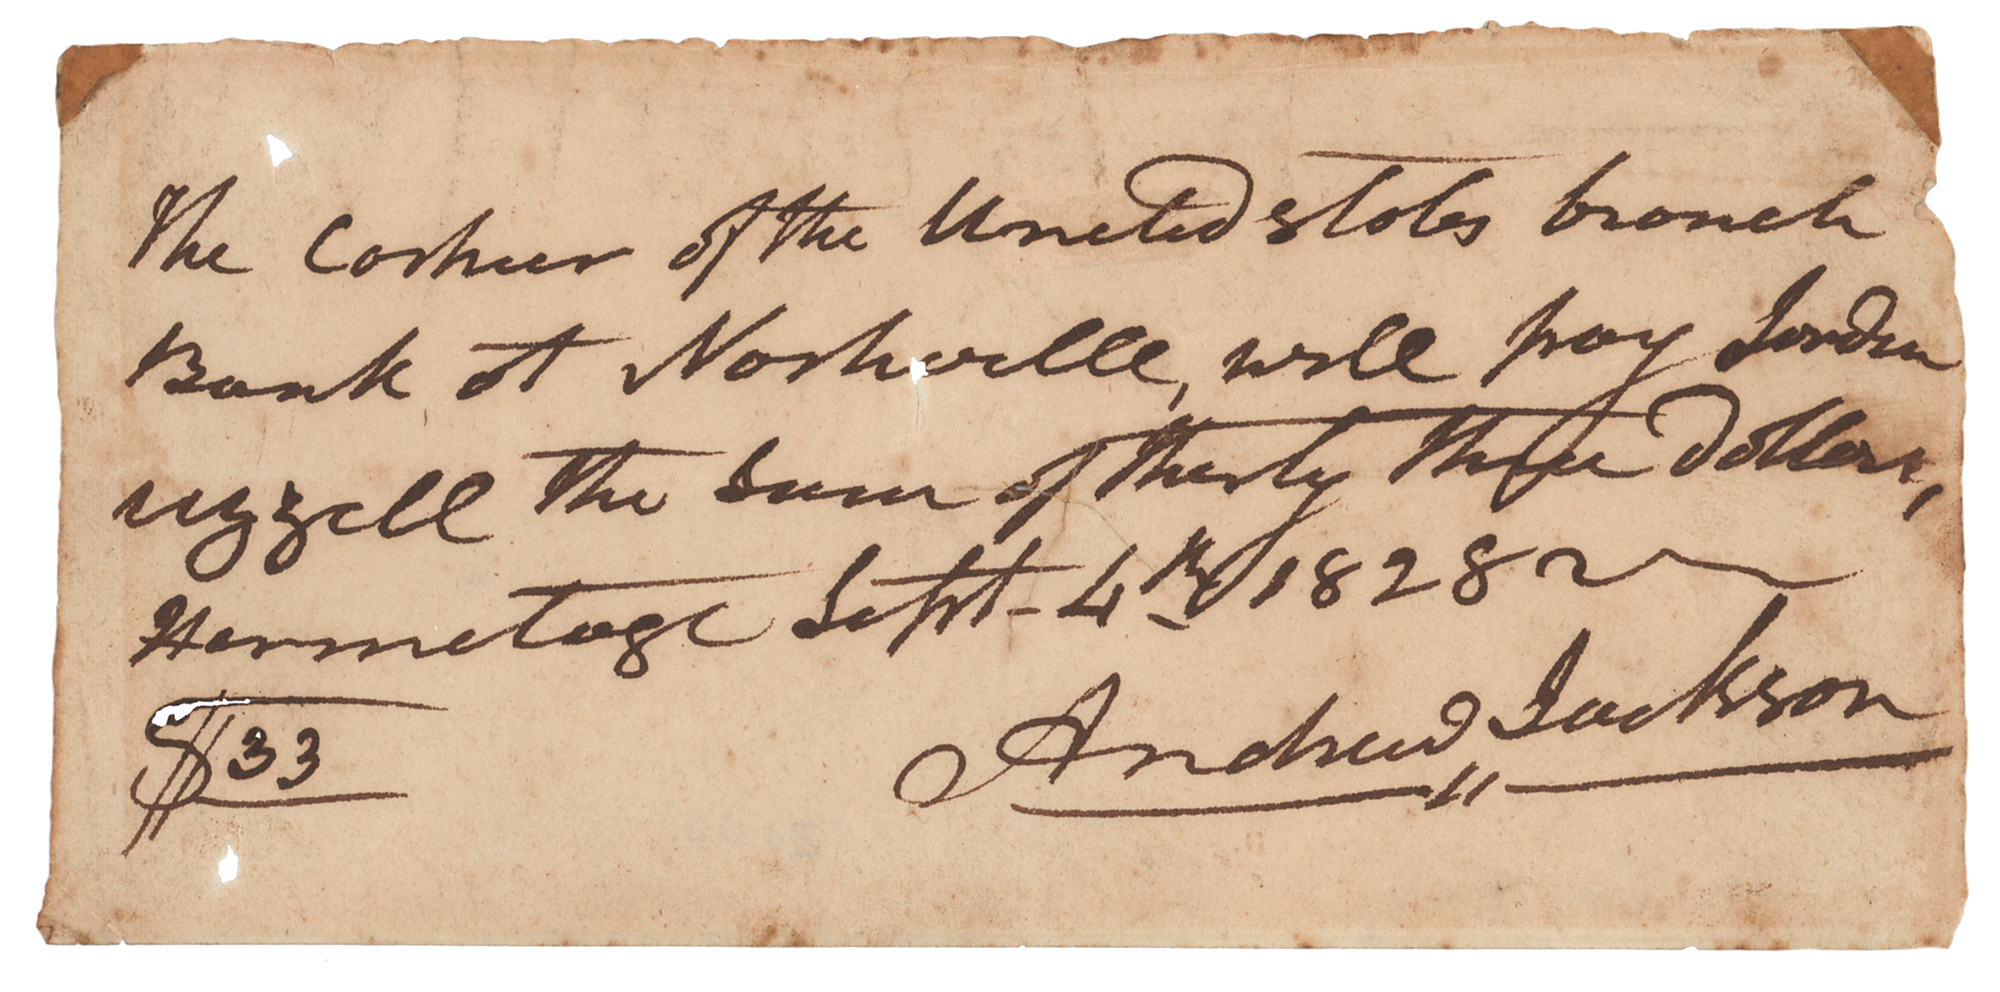 The Cashier of the United states branch
Bank at Nashville, will pay Jorden
uzzell the sum of thirty three dollars,
Hermitage Sept- 4th 1828
$33
Andrew Jackson